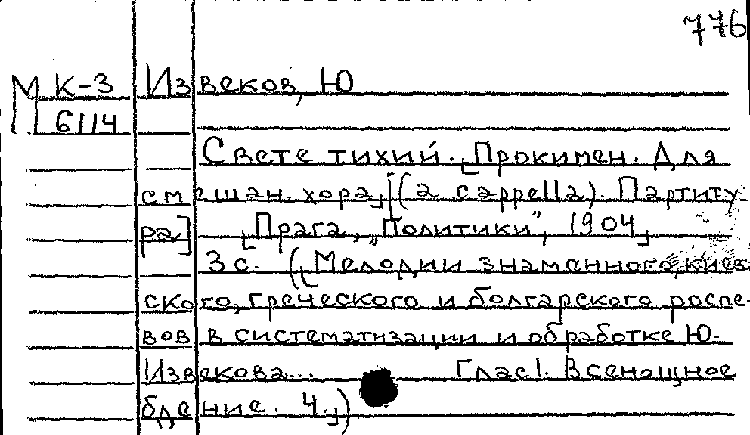 776
М К-3 Извеков, Ю
6114
Свете тихий. [Прокимен. Для
смешан. хора] [(a cappella). Партиту-
ра] [Прага, „Политики", 1904]
3 с. ([Мелодии знаменного, киев-
ского, греческого и болгарского роспе-
вов в систематизации и обработке Ю.
Извекова... Глас 1. Всенощное
бдение. 4.])